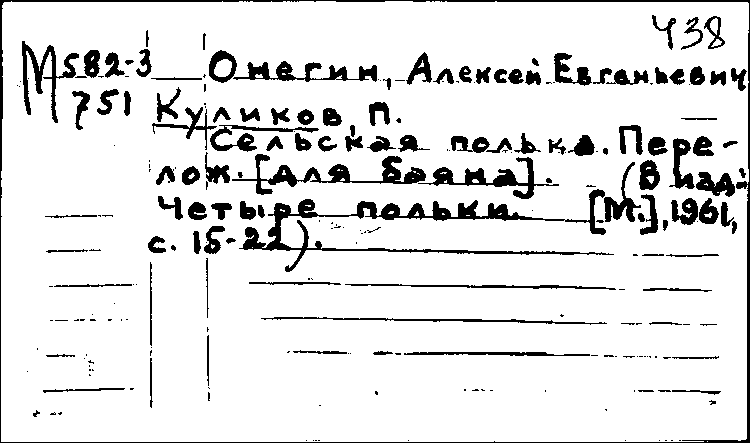 438
М 582-3 Онегин, Алексей Евгеньевич
751 Куликов, П.
Сельская полька. Пере-
лож. [для баяна]. (В изд.:
Четыре польки. [М.], 1961,
с. 15-22).